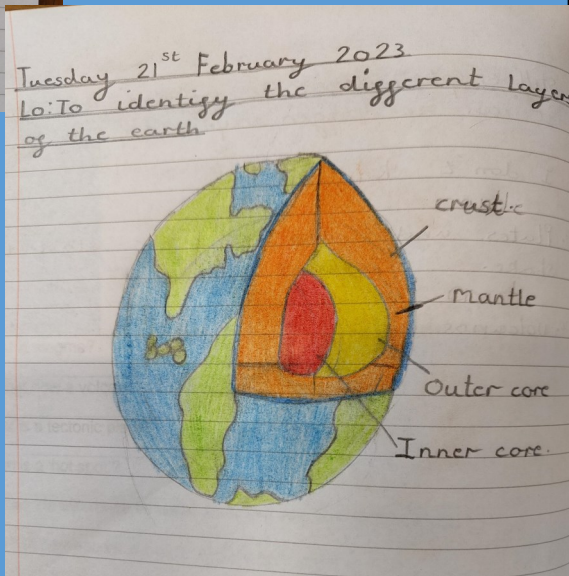 Tuesday 21st February 2023
Lo: To identify the different Layer
of the earth
crust
mantle
Outer core
Inner core.